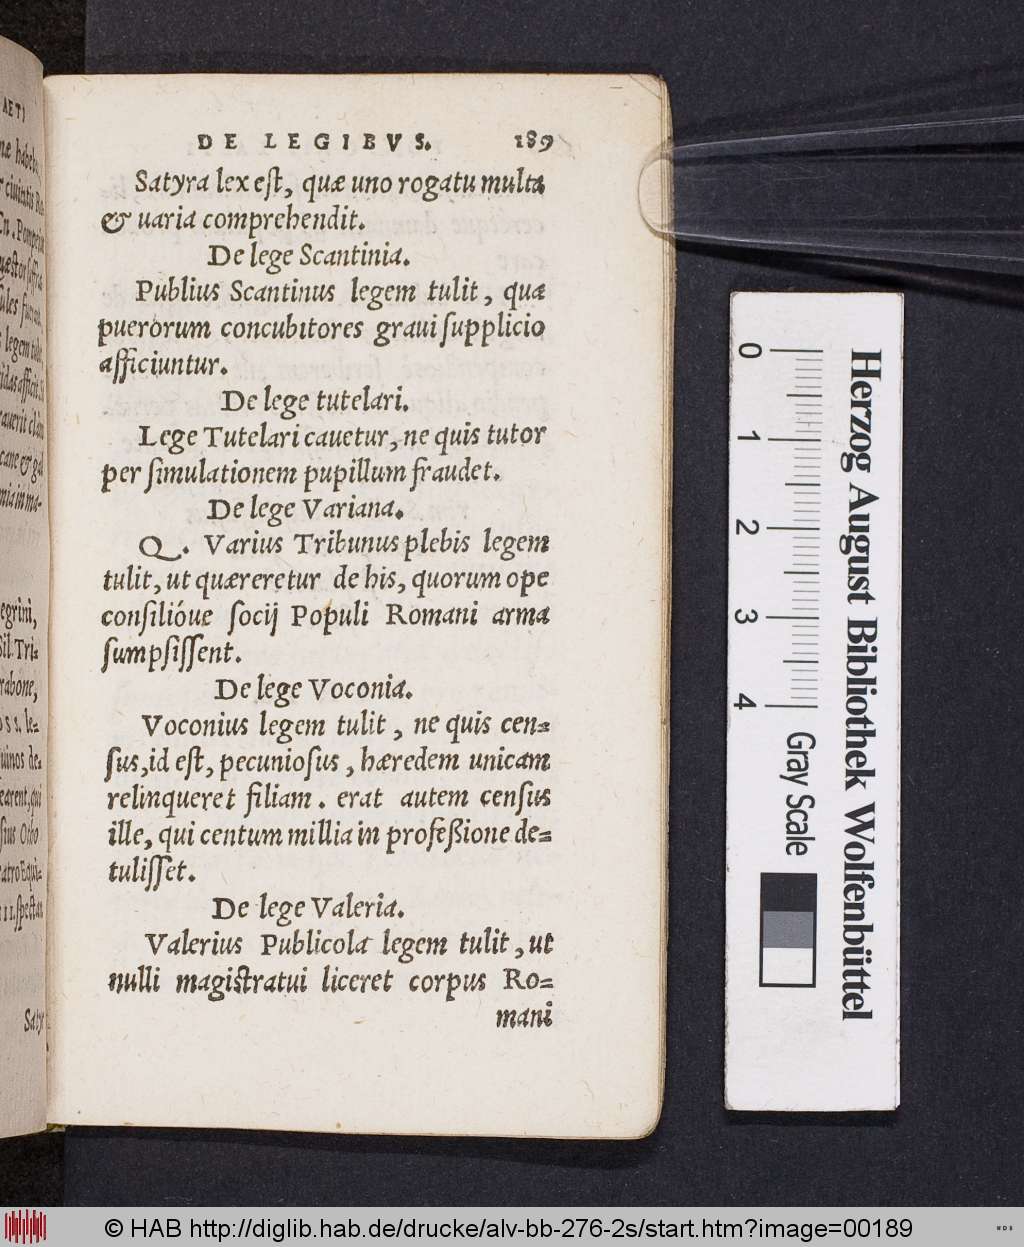 DE LEGIBVS. 189
Satyra lex est, quæ uno rogatu multa
& uaria comprehendit.
De lege Scantinia.
Publius Scantinus legem tulit, qua
puerorum concubitores graui supplicio
afficiuntur.
De lege tutelari.
Lege Tutelari cauetur, ne quis tutor
per simulationem pupillum fraudet.
De lege Variana.
Q. Varius Tribunus plebis legem
tulit, ut quæreretur de his, quorum ope
consilióue socij Populi Romani arma
sumpsissent.
De lege Voconia.
Voconius legem tulit, ne quis cen-
sus, id est, pecuniosus, hæredem unicam
relinqueret filiam. erat autem census
ille, qui centum millia in professione de-
tulisset.
De lege Valeria.
Valerius Publicola legem tulit, ut
nulli magistratui liceret corpus Ro-
mani
AETI
Cn. Pompeiu
legem
cane & gal
nia in ma-
egrini,
Sil. Tri-
rabone,
le-
uinos de-
earent, qui
sius Otho
atro Equi-
III. spectan
Satyr
0 1 2 3 4
Gray Scale
Herzog August Bibliothek Wolfenbüttel
© HAB http://diglib.hab.de/drucke/alv-bb-276-2s/start.htm?image=00189
WDB